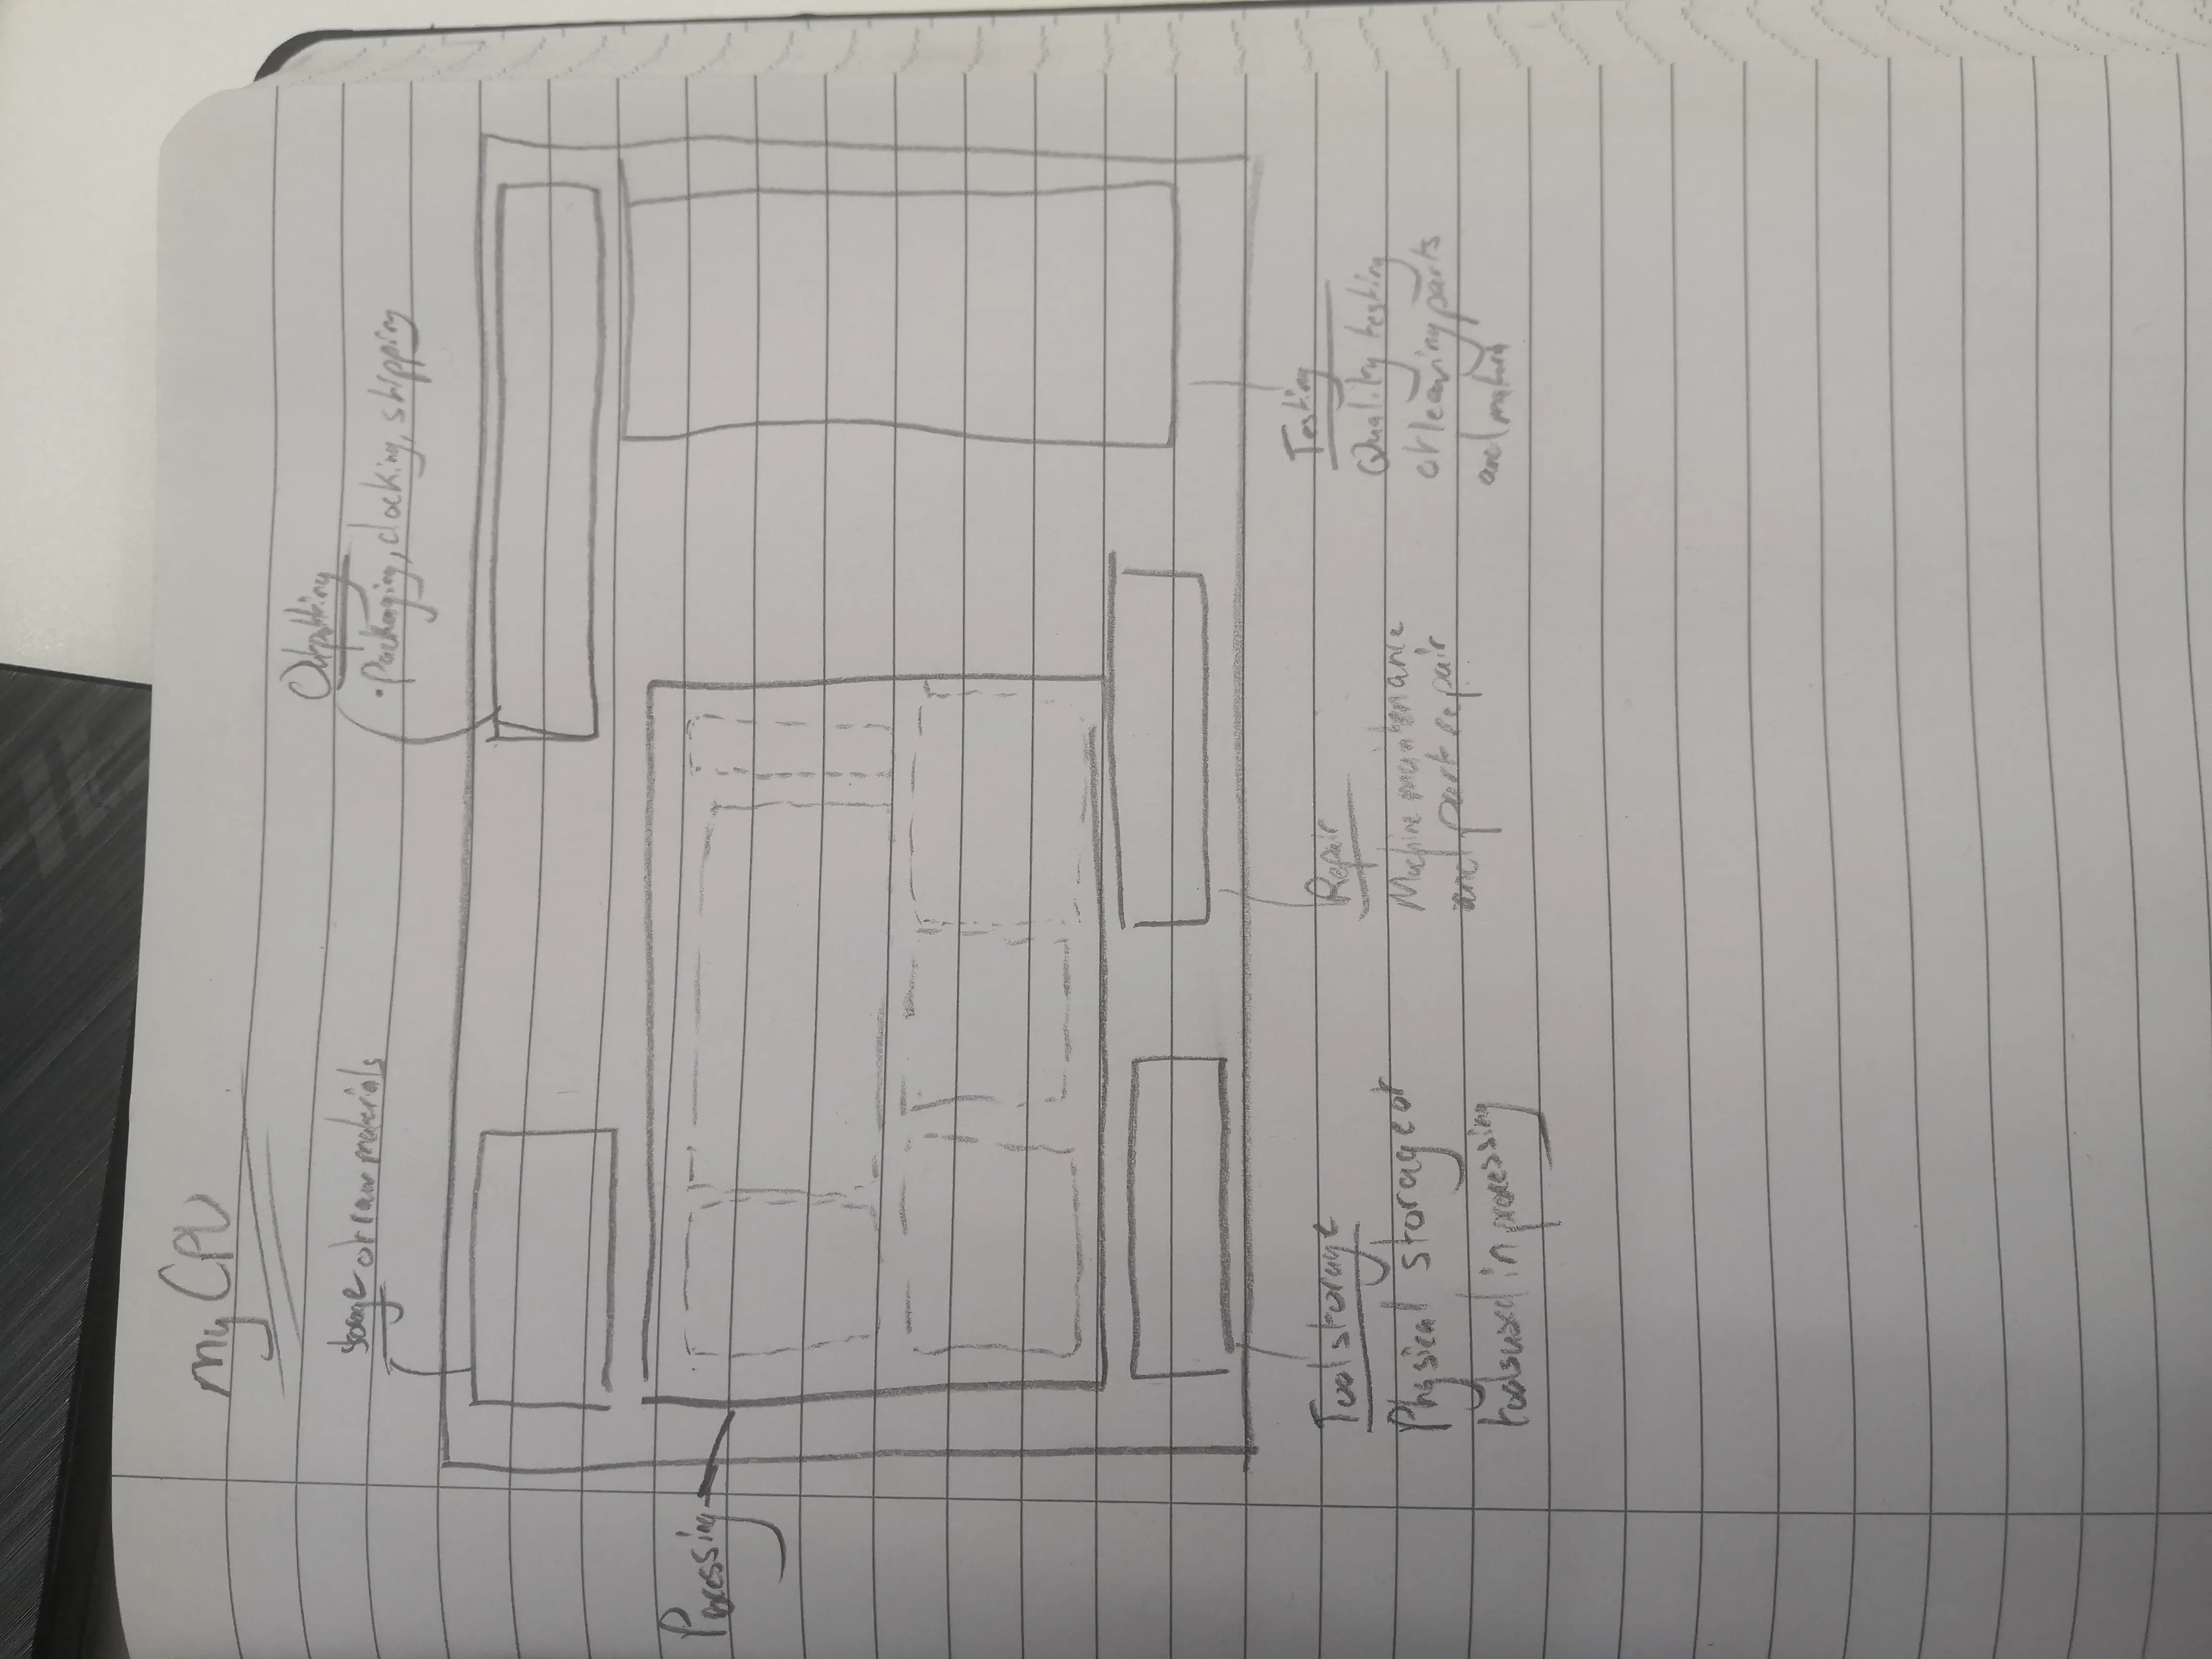 My CPU
Storage of raw materials
Outputting
• Packaging, docking, shipping
Processing
Tool storage
Physical storage of
tools used in processing
Repair
Machine maintenance
and part repair
Testing
Quality testing
of leaving parts
and